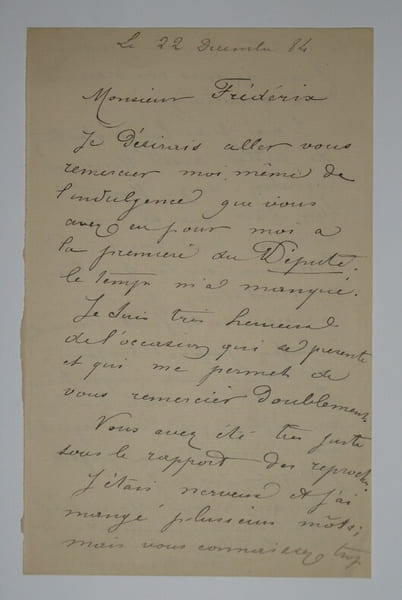 Le 22 Decembre 84
Monsieur Frédérix
Je Désirais aller vous
remercier moi même de
l'indulgence que vous
avez eu pour moi a
la premiere du Député.
le temps m'a manqué.
Je suis très heureux
de l'occasion qui se presente
et qui me permet de
vous remercier Doublement.
Vous avez été très juste
sous le rapport des reproches.
J'étais nerveux et j'ai
mangé plusieurs môts;
mais vous connaissez trop